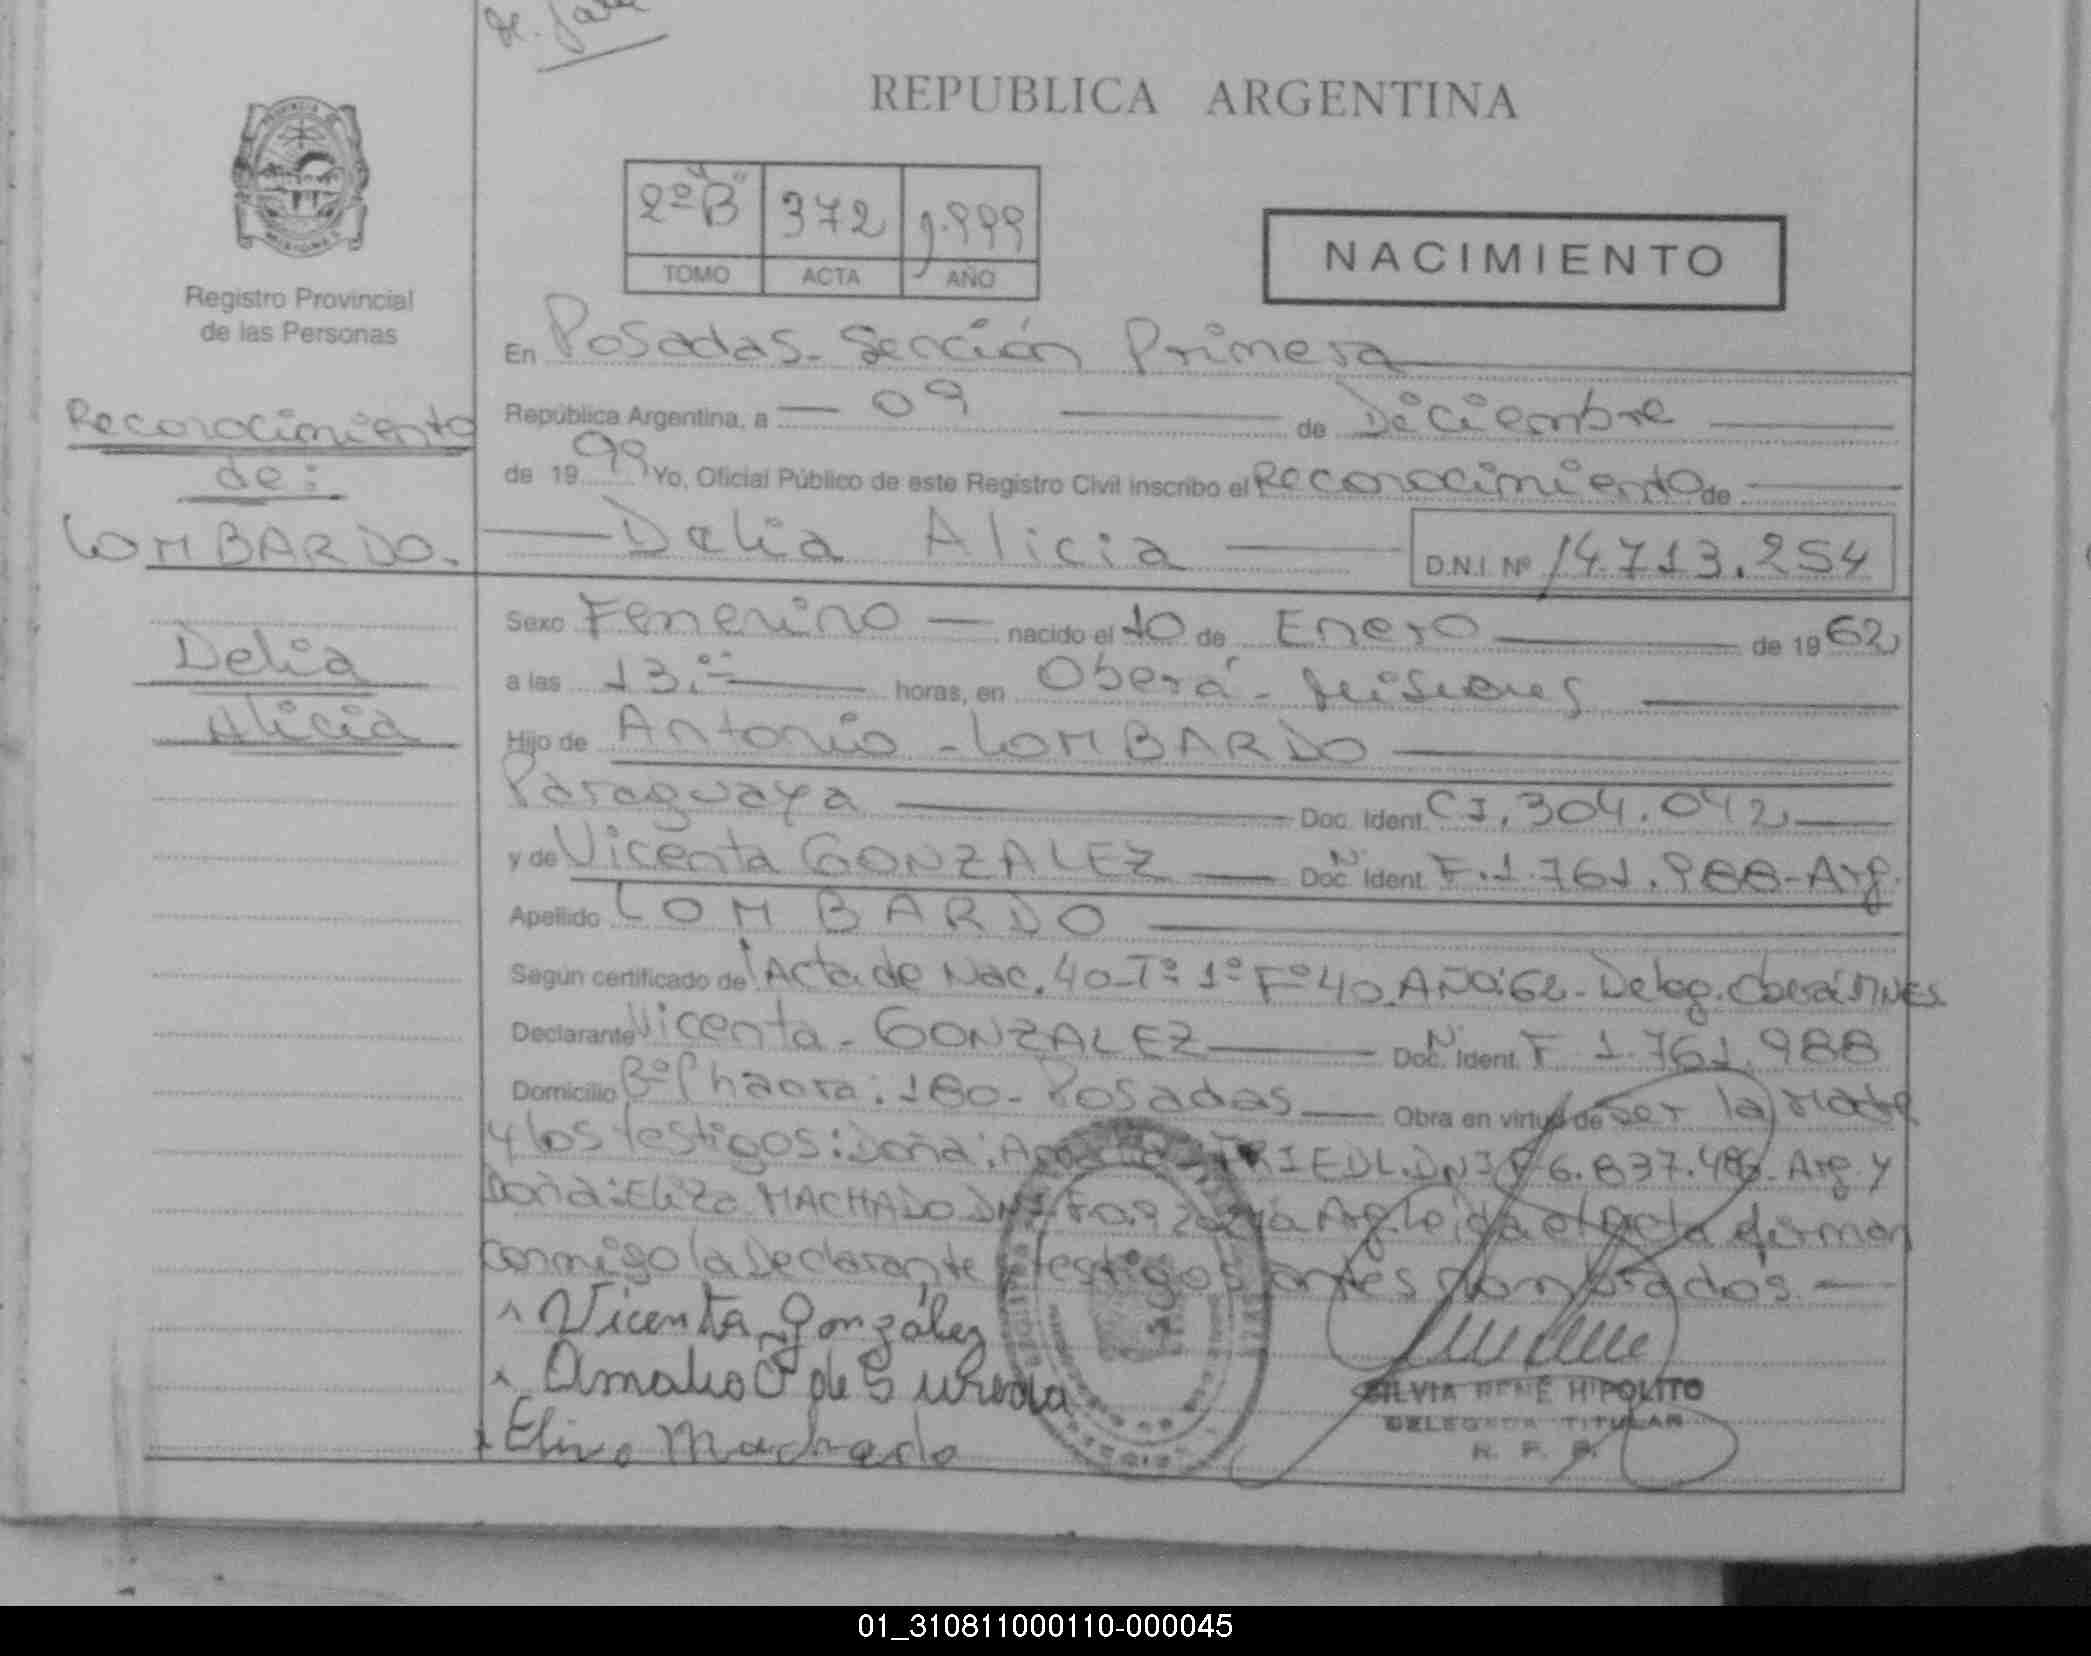 REPUBLICA ARGENTINA
2º "B" 372 1.999
TOMO ACTA AÑO
NACIMIENTO
Registro Provincial
de las Personas
Reconocimiento
de:
LOMBARDO.
Delia
Alicia
En Posadas - Sección Primera
República Argentina, a 09 de Diciembre
de 1999 Yo, Oficial Público de este Registro Civil inscribo el Reconocimiento de
Delia Alicia D.N.I. Nº 14.713.254
Sexo Femenino nacido el 10 de Enero de 1962
a las 13.- horas, en Oberá - Misiones
Hijo de Antonio - LOMBARDO
Paraguaya Doc. Ident. CI. 304.042
y de Vicenta GONZALEZ Doc. Ident. F. 1.761.988 - Arg.
Apellido LOMBARDO
Según certificado de Acta de Nac. 40 - Tº 1º Fº 40 Año: 62 - Deleg. Oberá MNES
Declarante Vicenta - GONZALEZ Doc. Ident. F. 1.761.988
Domicilio Bº Chacra: 180 - Posadas Obra en virtud de ser la Madre
y los testigos: Doña: TRIEDL. DNI F 6.837. Arg. y
Doña: Eliza MACHADO Arg. leida el acta firman
conmigo la Declarante y testigos antes nombrados.
Vicenta González
Amalia de
Eliza Machado
SILVIA RENÉ HIPOLITO
DELEGADA TITULAR
R. P. P.
01_310811000110-000045